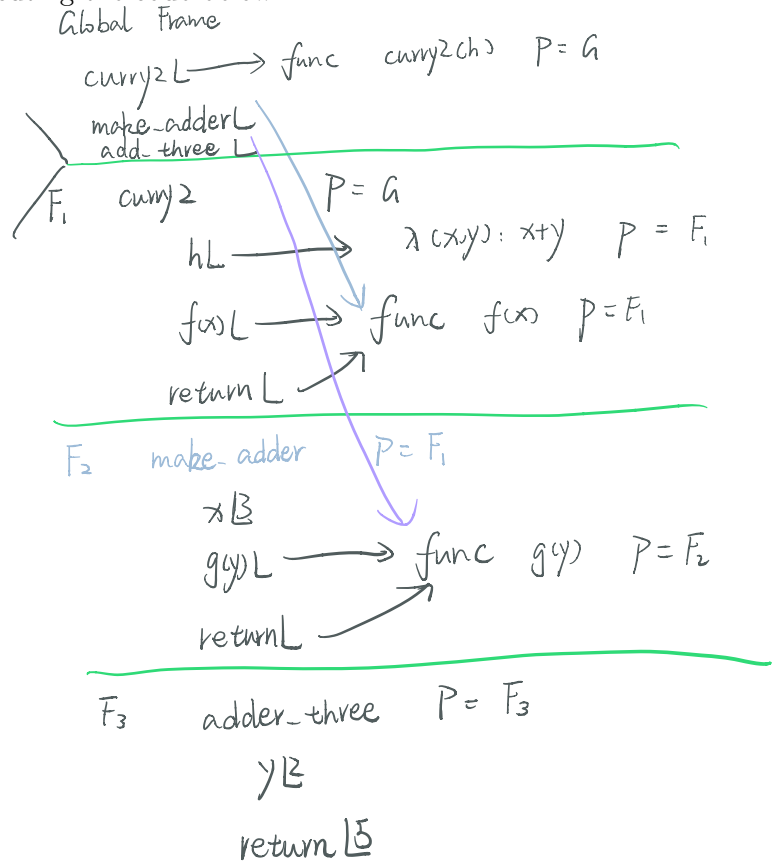 Global Frame
curry2 func curry2(h) P = G
make_adder
add_three
F₁ curry2 P = G
h λ(x,y): x+y P = F₁
f(x) func f(x) P = F₁
return
F₂ make_adder P = F₁
x 3
g(y) func g(y) P = F₂
return
F₃ adder_three P = F₃
y 2
return 5